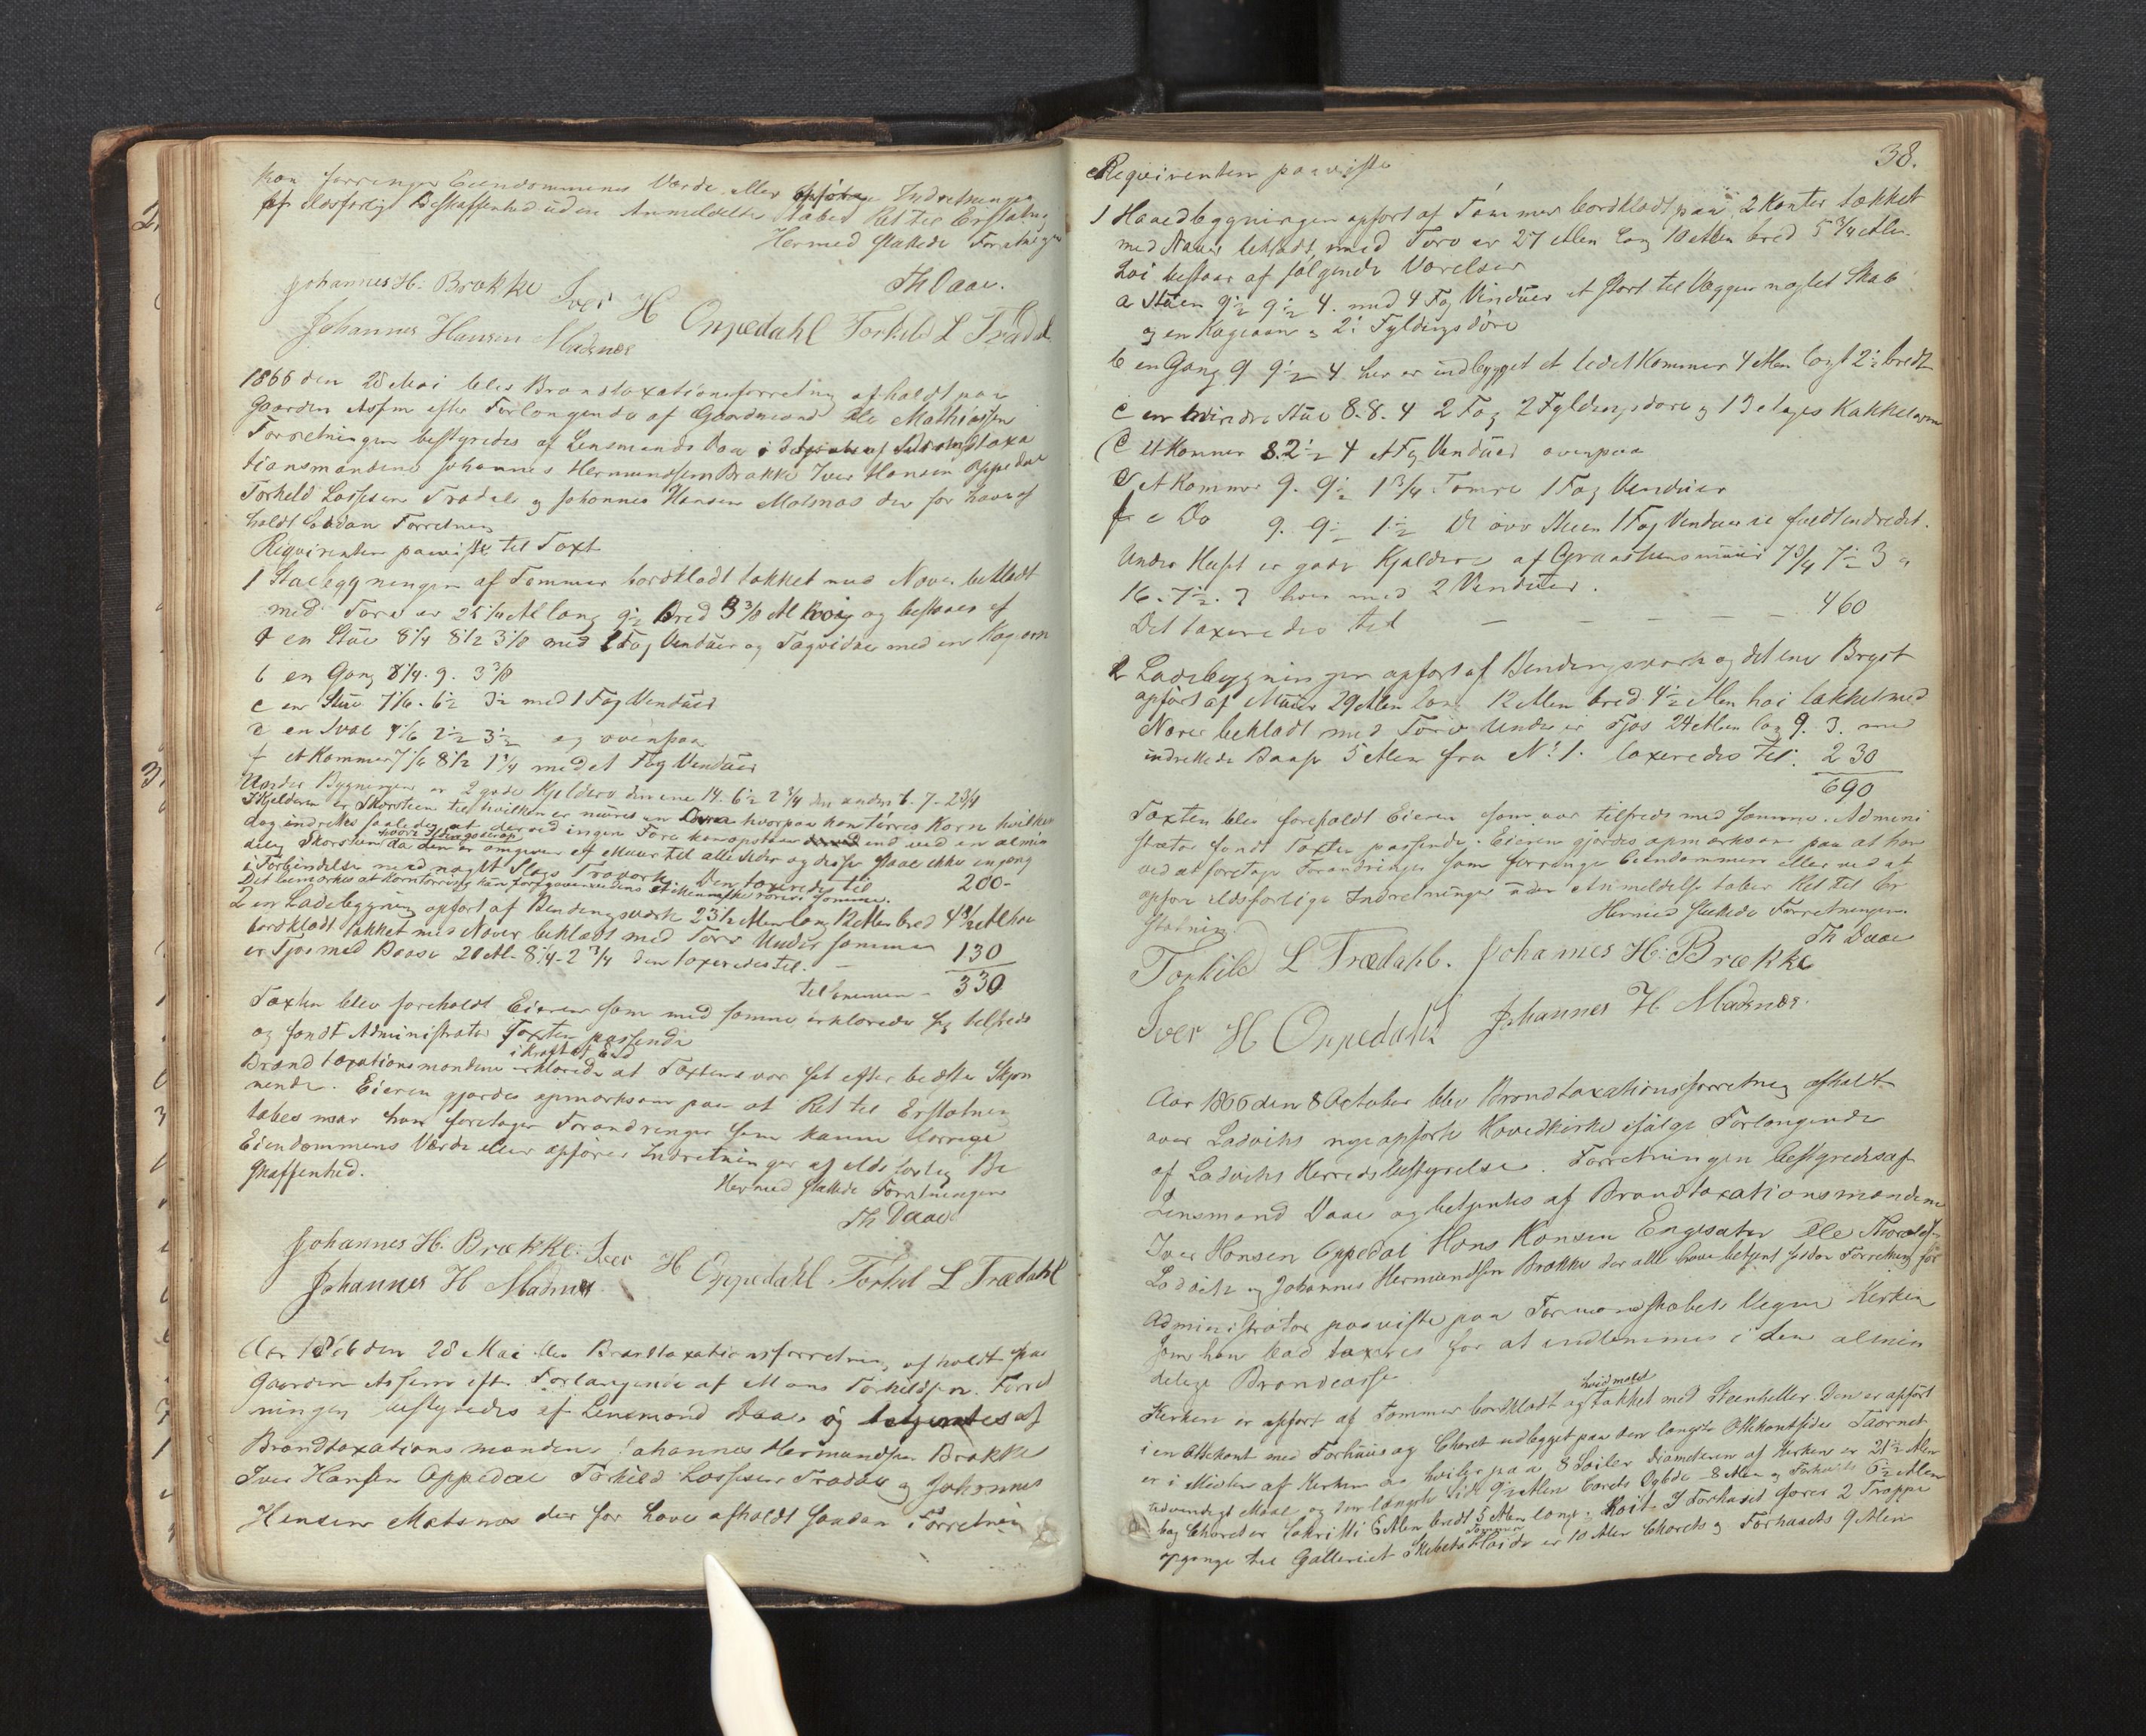 kan forringe Eiendommens Værdi eller opføre Indretninger
af ildsfarlig Beskaffenhed uden Anmeldelse tabes Ret til Erstatning
Hermed sluttede Forretningen
Th Daae.
Johannes H. Brække Iver H Oppedahl Torkild L Trædal
Johannes Hansen Madsnes
1866 den 28 Mai blev Brandtaxationsforretning afholdt paa
Gaarden efter Forlangende af Gaardmand Ole Mathiassen
Forretningen bestyredes af Lensmand Daa
tionsmændene Johannes Hermundsen Brække Iver Hansen Oppedal
Torkeld Lassesen Trædal og Johannes Hansen Matsnæs der før have af
holdt saadan Forretning
Requirenten paaviste til Taxt
1 Stuebygningen af Tømmer bordklædt takket med Næver beklædt
med Torv er 25 1/4 Al lang 9 1/2 bred 3 3/8 Al høi og bestaaer af
a en Stue 8 1/4 8 1/2 3 1/8 med 2 Fag Vinduer og Tagvidue med en Kagovn
b en Gang 8 1/4. 9. 3 3/8
c en Stue 7 1/6. 6 1/2 3 1/2 med 1 Fag Vinduer
e en Sval 7 1/6 2 1/2 3 1/2 og ovenpaa
f et Kammer 7 1/6 8 1/2 1 1/4 med et Fag Vinduer
Under Bygningen er 2 gode Kjeldere den ene 14. 6 1/2 2 3/4 den anden 6. 7 - 2 3/4
I Kjelderen er Skorsteen til hvilken er muret en hvorpaa kan tørres Korn hvilken
dog indrettes saaledes at derved ingen Fare kan opstaa end ved en almin
delig Skorsteen da den er omgiven af Muur til alle sider og disse staae ikke engang
i Forbindelse med noget Slags Træværk. Den taxeredes til 200-
Det bemærkes at Korntørring kan
2 en Ladebygning opført af Bendingsværk 23 1/2 Alen lang 12 Alen bred 4 1/2 Al høi
bordklædt takket med Næver beklædt med Torv Under samme
er Fjøs med Baase 20 Al - 8 1/4 - 2 3/4 den taxeredes til. - 130
Tilsammen - 330
Taxten blev foreholdt Eieren som med samme erklærede sig tilfreds
og fandt Administrator Taxten passende
i Kraft af Eed
Brandtaxationsmændene erklærede at Taxten var sat efter bedste Skjøn
nende. Eieren gjordes opmærksom paa at Ret til Erstatning
tabes naar han foretager Forandringer som kunne forringe
Eiendommens Værdi eller opfører Indretninger af ildsfarlig Be
skaffenhed.
Hermed sluttede Forretningen
Th Daae
Johannes H. Brække. Iver H Oppedahl. Torkil L Trædahl
Johannes H Madsnes
Aar 1866 den 28 Mai blev Brandtaxationsforretning afholdt paa
Gaarden efter Forlangende af Mons Torkildsen. Forret
ningen bestyredes af Lensmand Daae og betjentes af
Brandtaxationsmændene Johannes Hermundsen Brække
Iver Hansen Oppedal Torkild Lassesen Trædal og Johannes
Hansen Matsnæs der før have afholdt saadan Forretning
38.
Requirenten paaviste
1 Hovedbygningen opført af Tømmer bordklædt paa 2 Kanter takket
med Næver beklædt med Torv er 27 Alen lang 10 Alen bred 5 3/4 Alen
høi bestaar af følgende Værelser
a Stuen 9 1/2 9 1/2 4. med 4 Fag Vinduer et stort til Væggen naglet Skab
og en Kagovn og 2 Fyldingsdøre
b en Gang 9 9 1/2 4 her er indbygget et lidet Kammer 4 Alen langt 2 1/2 bredt
c en mindre Stue 8. 8. 4 2 Fag 2 Fyldingsdøre og 1 3 etages Kakkelovn
et Kammer 8. 2 1/2 4 et Fag Vinduer ovenpaa
et Kammer 9. 9 1/2 1 3/4 1 Fag Vinduer
f Do 9. 9 1/2 1 1/2 over Stuen 1 Fag Vinduer fuldtindredet.
Under Huset er gode Kjeldere af Graasteensmuur 7 3/4 7 1/2 3 og
16. 7 1/2. 3 hver med 2 Vinduer.
Det taxeredes til - - - - 460
2 Ladebygningen opført af Bendingsværk og det ene Bryst
opført af Muur 29 Alen lang 12 Alen bred 4 1/2 Alen høi takket med
Næver beklædt med Torv Under er Fjøs 24 Alen lang 9. 3. med
indrettede Baase 5 Alen fra No 1. taxeredes til: 230
690
Taxten blev foreholdt Eieren som var tilfreds med samme. Admini
strator fandt Taxten passende. Eieren gjordes opmærksom paa at han
ved at foretage Forandringer som forringe Eiendommen eller ved at
opføre ildsfarlige Indretninger uden Anmeldelse taber Ret til Er
statning.
Hermed sluttede Forretningen.
Th Daae
Torkild L Trædahl. Johannes H. Brække
Iver H Oppedahl Johannes H Madsnes.
Aar 1866 den 8 October blev Brandtaxationsforretning afholdt
over Ladviks nye opførte Hovedkirke ifølge Forlangende
af Ladviks Herredsbestyrelse. Forretningen bestyredes af
Lensmand Daae og betjentes af Brandtaxationsmændene
Iver Hansen Oppedal Hans Hansen Engesæter Ole
Ladvik og Johannes Hermundsen Brække der alle have betjent saadan Forretning før
Administrator paaviste paa Formandskabets Vegne Kirken
som han bad taxeres for at indlemmes i den almin
delige Brandcasse
hvidmalet
Kirken er opført af Tømmer bordklædt og takket med Steenheller. Den er opført
i en Ottekant med Forhuus og Choret udbygget paa den længste Ottekantsider Taarnet
er i Midten af Kirken og hviler paa 8 Søiler Diameteren af Kirken er 21 1/2 Alen
udvendigt Maal og den længste Side 9 1/2 Alen Corets Dybde 8 Alen og Forhuuset 6 1/2 Alen
bag Choret er Sakristi 6 Alen bredt 5 Alen langt. I Forhuset fører 2 Trappe
opgange til Galleriet Høide er 10 Alen Chorets og Forhusets 9 Alen